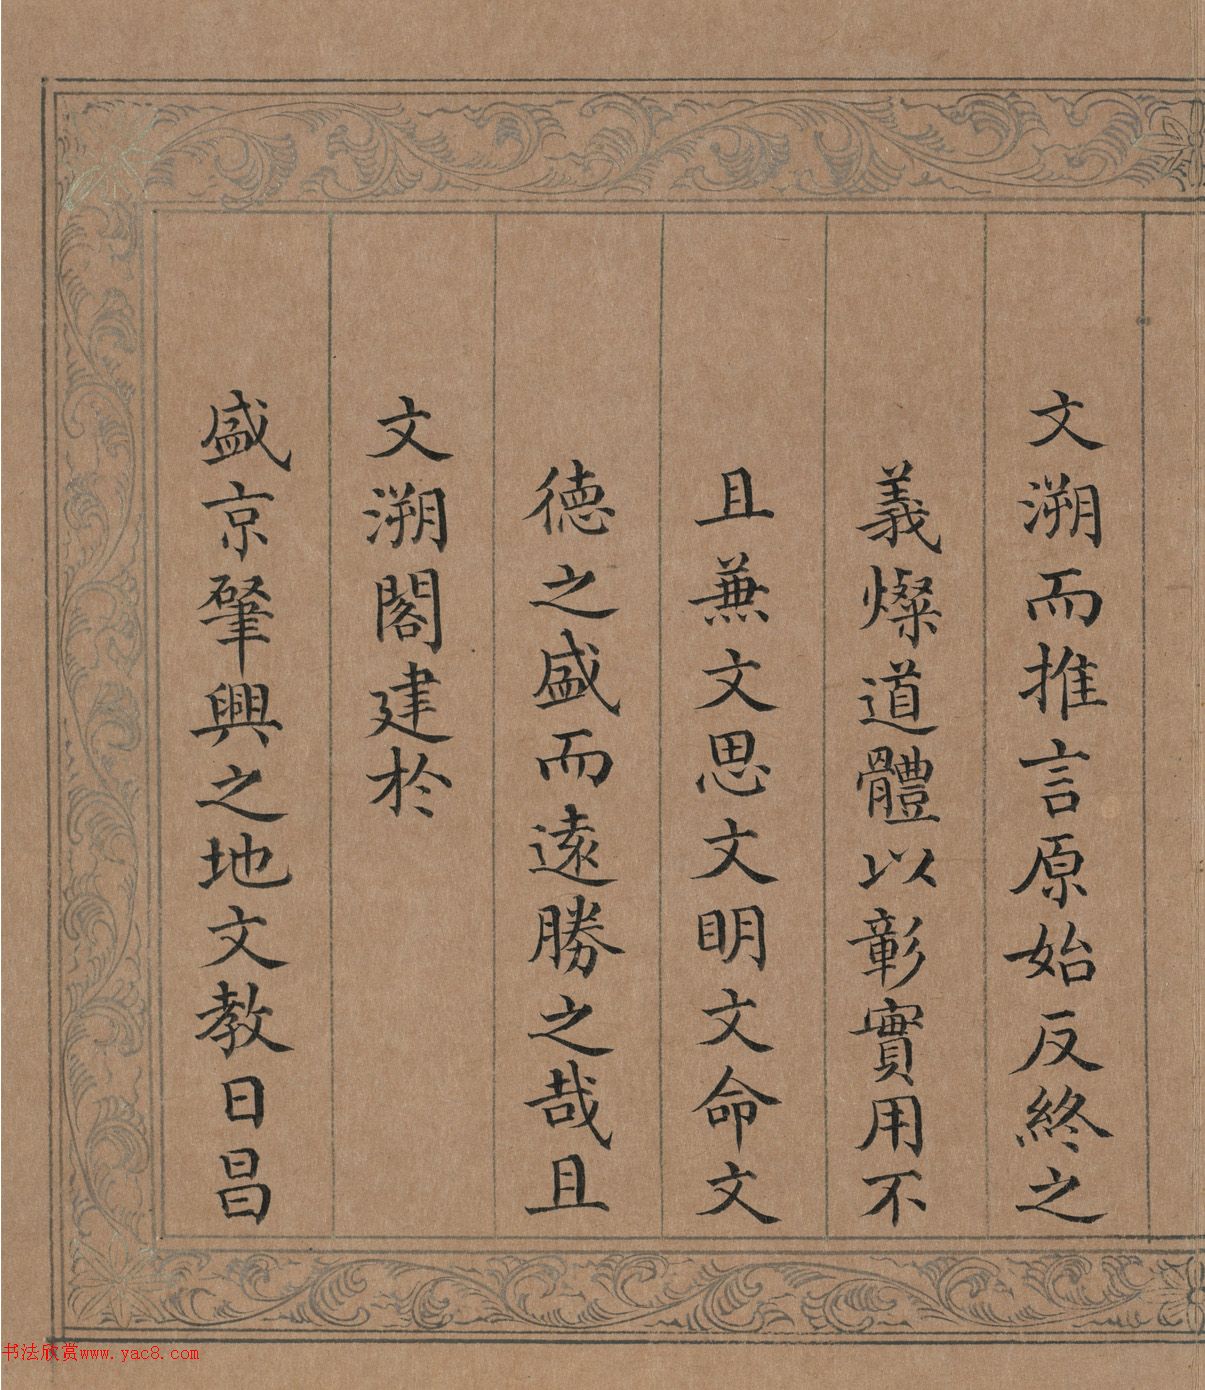 文溯而推言原始反終之
義燦道體以彰實用不
且蕪文思文明文命文
德之盛而遠勝之哉且
文溯閣建於
盛京肇興之地文教日昌
书法欣赏www.yac8.com